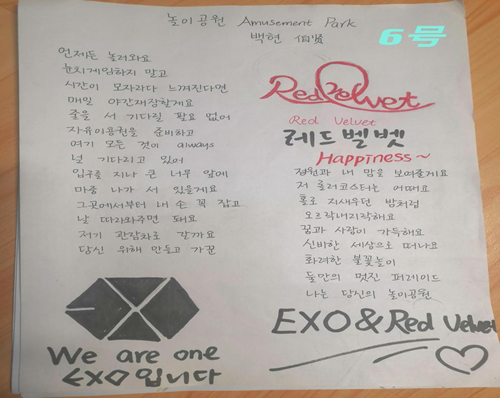 놀이공원 Amusement Park
백현 伯贤
6号
언제든 놀러와요
눈치게임하지 말고
시간이 모자라다 느껴진다면
매일 야간재장할게요
줄을 서 기다릴 필요 없어
자유이용권을 준비하고
여기 모든 것이 always
널 기다리고 있어
입구를 지나 큰 나무 앞에
마중 나가 서 있을게요
그곳에서부터 내 손 꼭 잡고
날 따라와주면 돼요
저기 관람차로 갈까요
당신 위해 만들고 가꾼
Red Velvet
Red Velvet
레드벨벳
Happiness~
정원과 내 맘을 보여줄게요
저 롤러코스터는 어때요
홀로 지새우던 밤처럼
오르락내리락해요
꿈과 사랑이 가득해요
신비한 세상으로 떠나요
화려한 불꽃놀이
둘만의 멋진 퍼레이드
나는 당신의 놀이공원
We are one
EXO입니다
EXO & Red Velvet